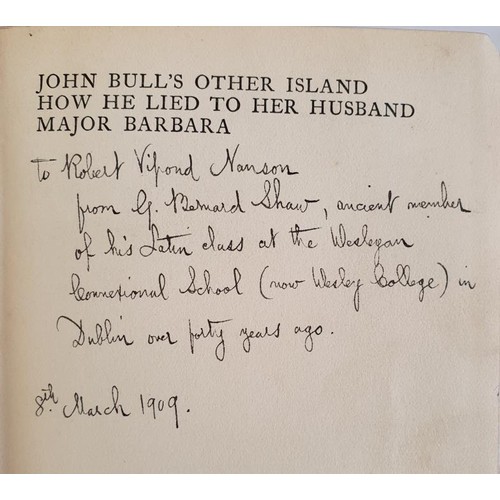 JOHN BULL'S OTHER ISLAND
HOW HE LIED TO HER HUSBAND
MAJOR BARBARA
To Robert Vipond Nanson
from G. Bernard Shaw, ancient member
of his Latin class at the Wesleyan
Connexional School (now Wesley College) in
Dublin over forty years ago.
8th. March 1909.